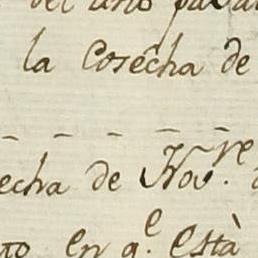 del año pasa
la Cosecha de
echa de Nov.re
to en q.e està